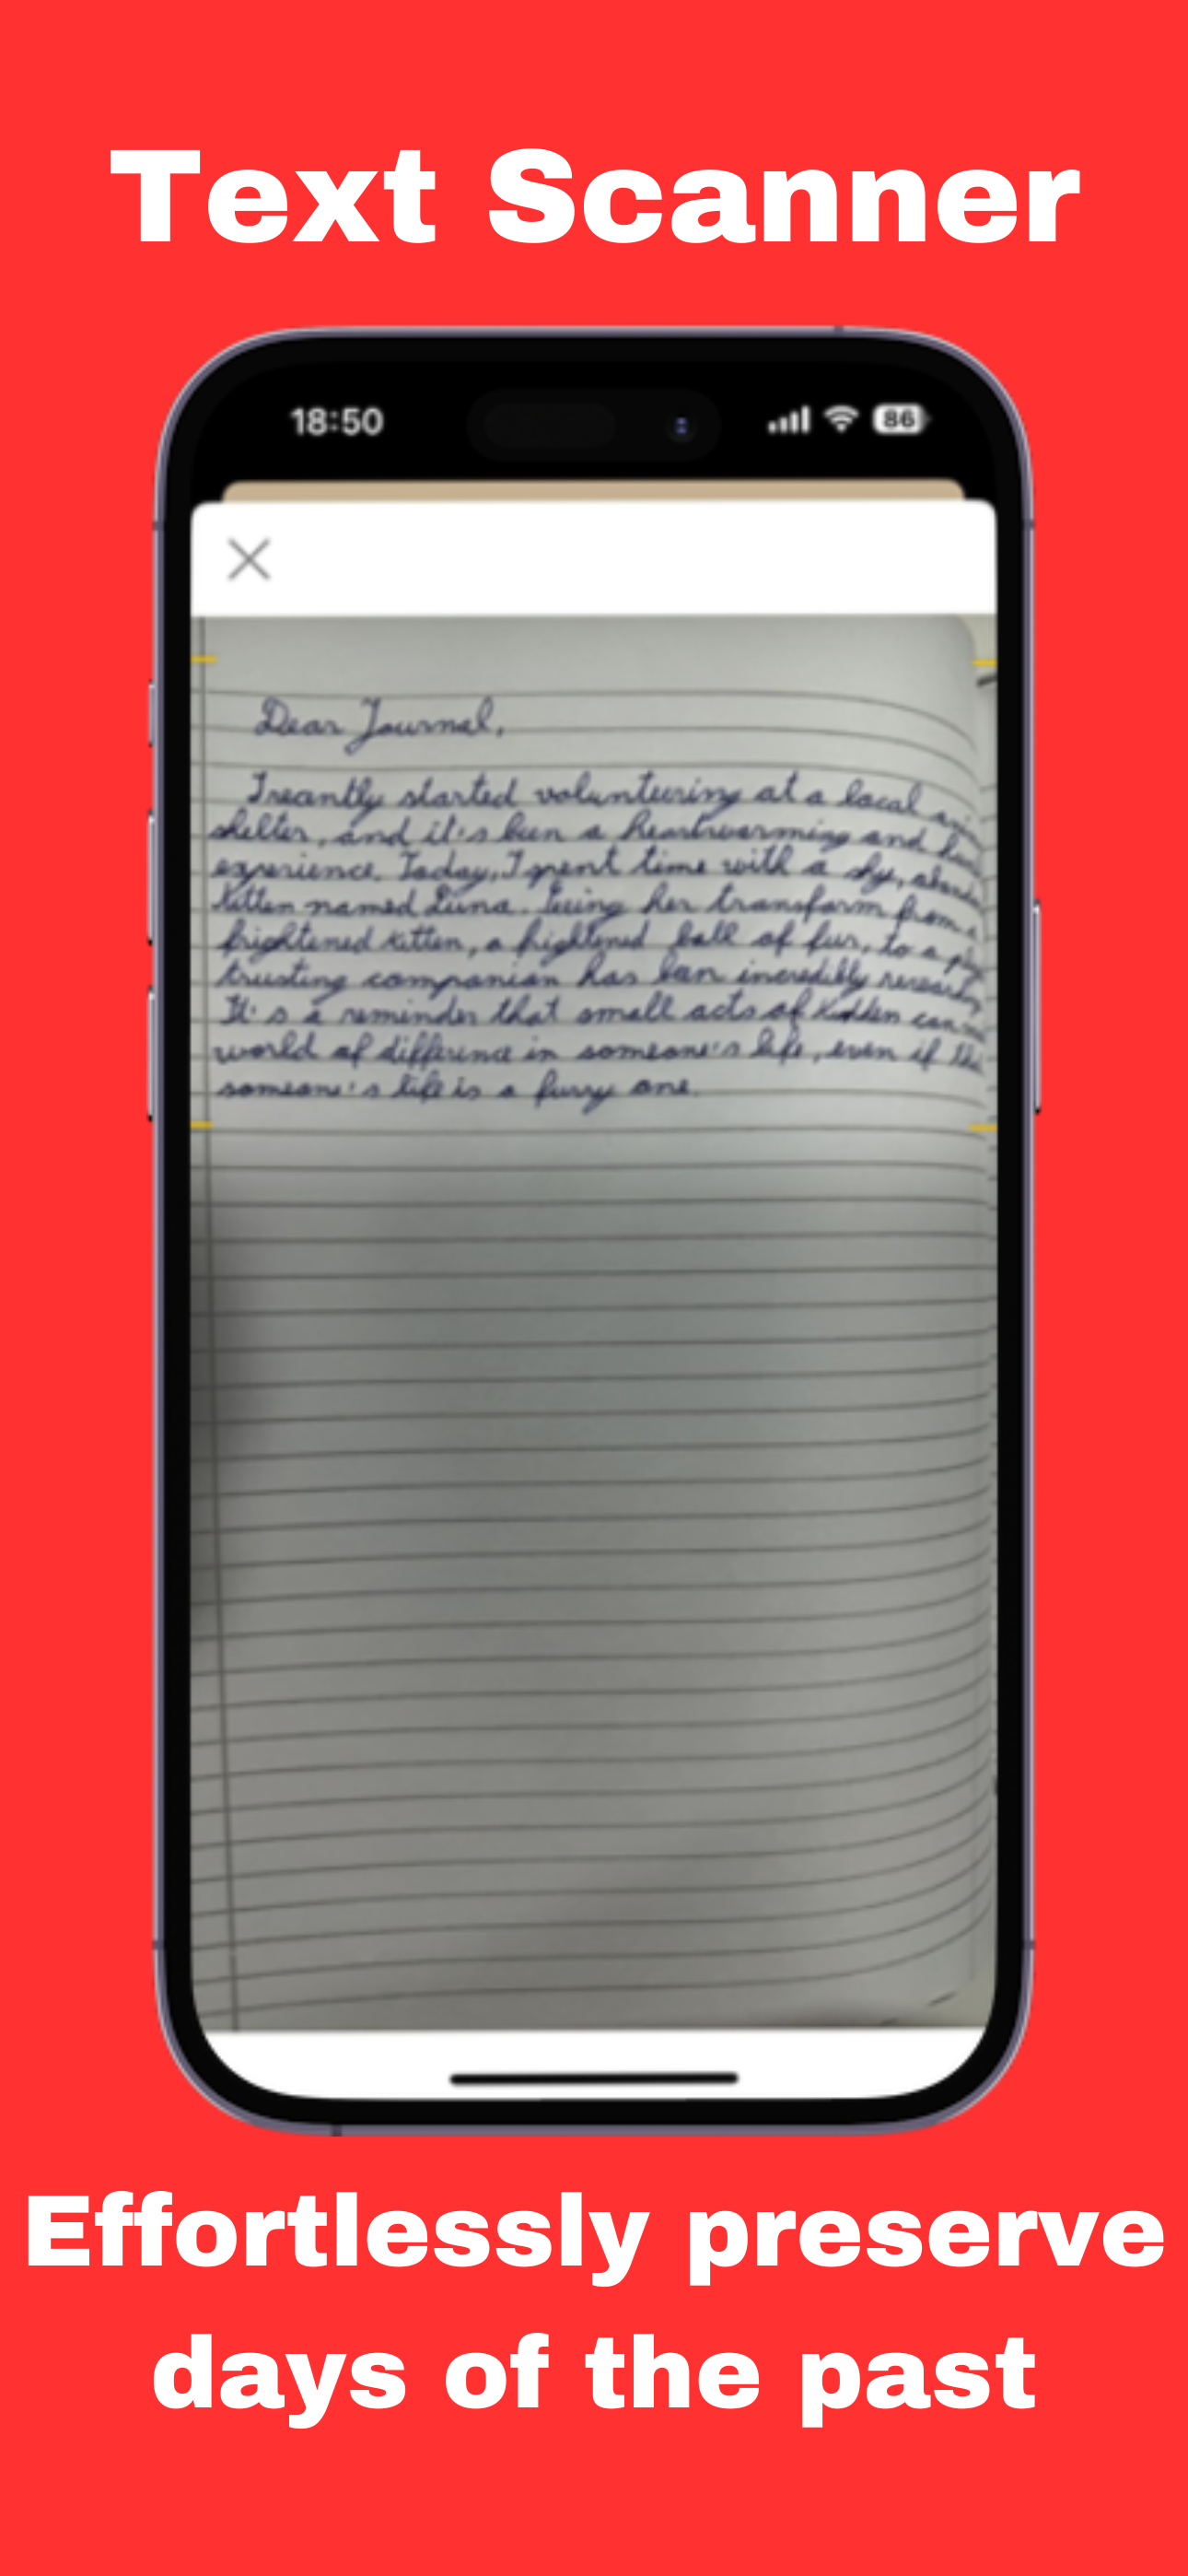 Text Scanner
18:50
86
Dear Journal,
I recently started volunteering at a local
shelter, and it's been a heartwarming and
experience. Today, I spent time with a shy,
kitten named Luna. Seeing her transform from a
frightened kitten, a frightened ball of fur, to a
trusting companion has been incredibly
It's a reminder that small acts of can
world of difference in someone's life, even if
someone's life is a furry one.
Effortlessly preserve
days of the past